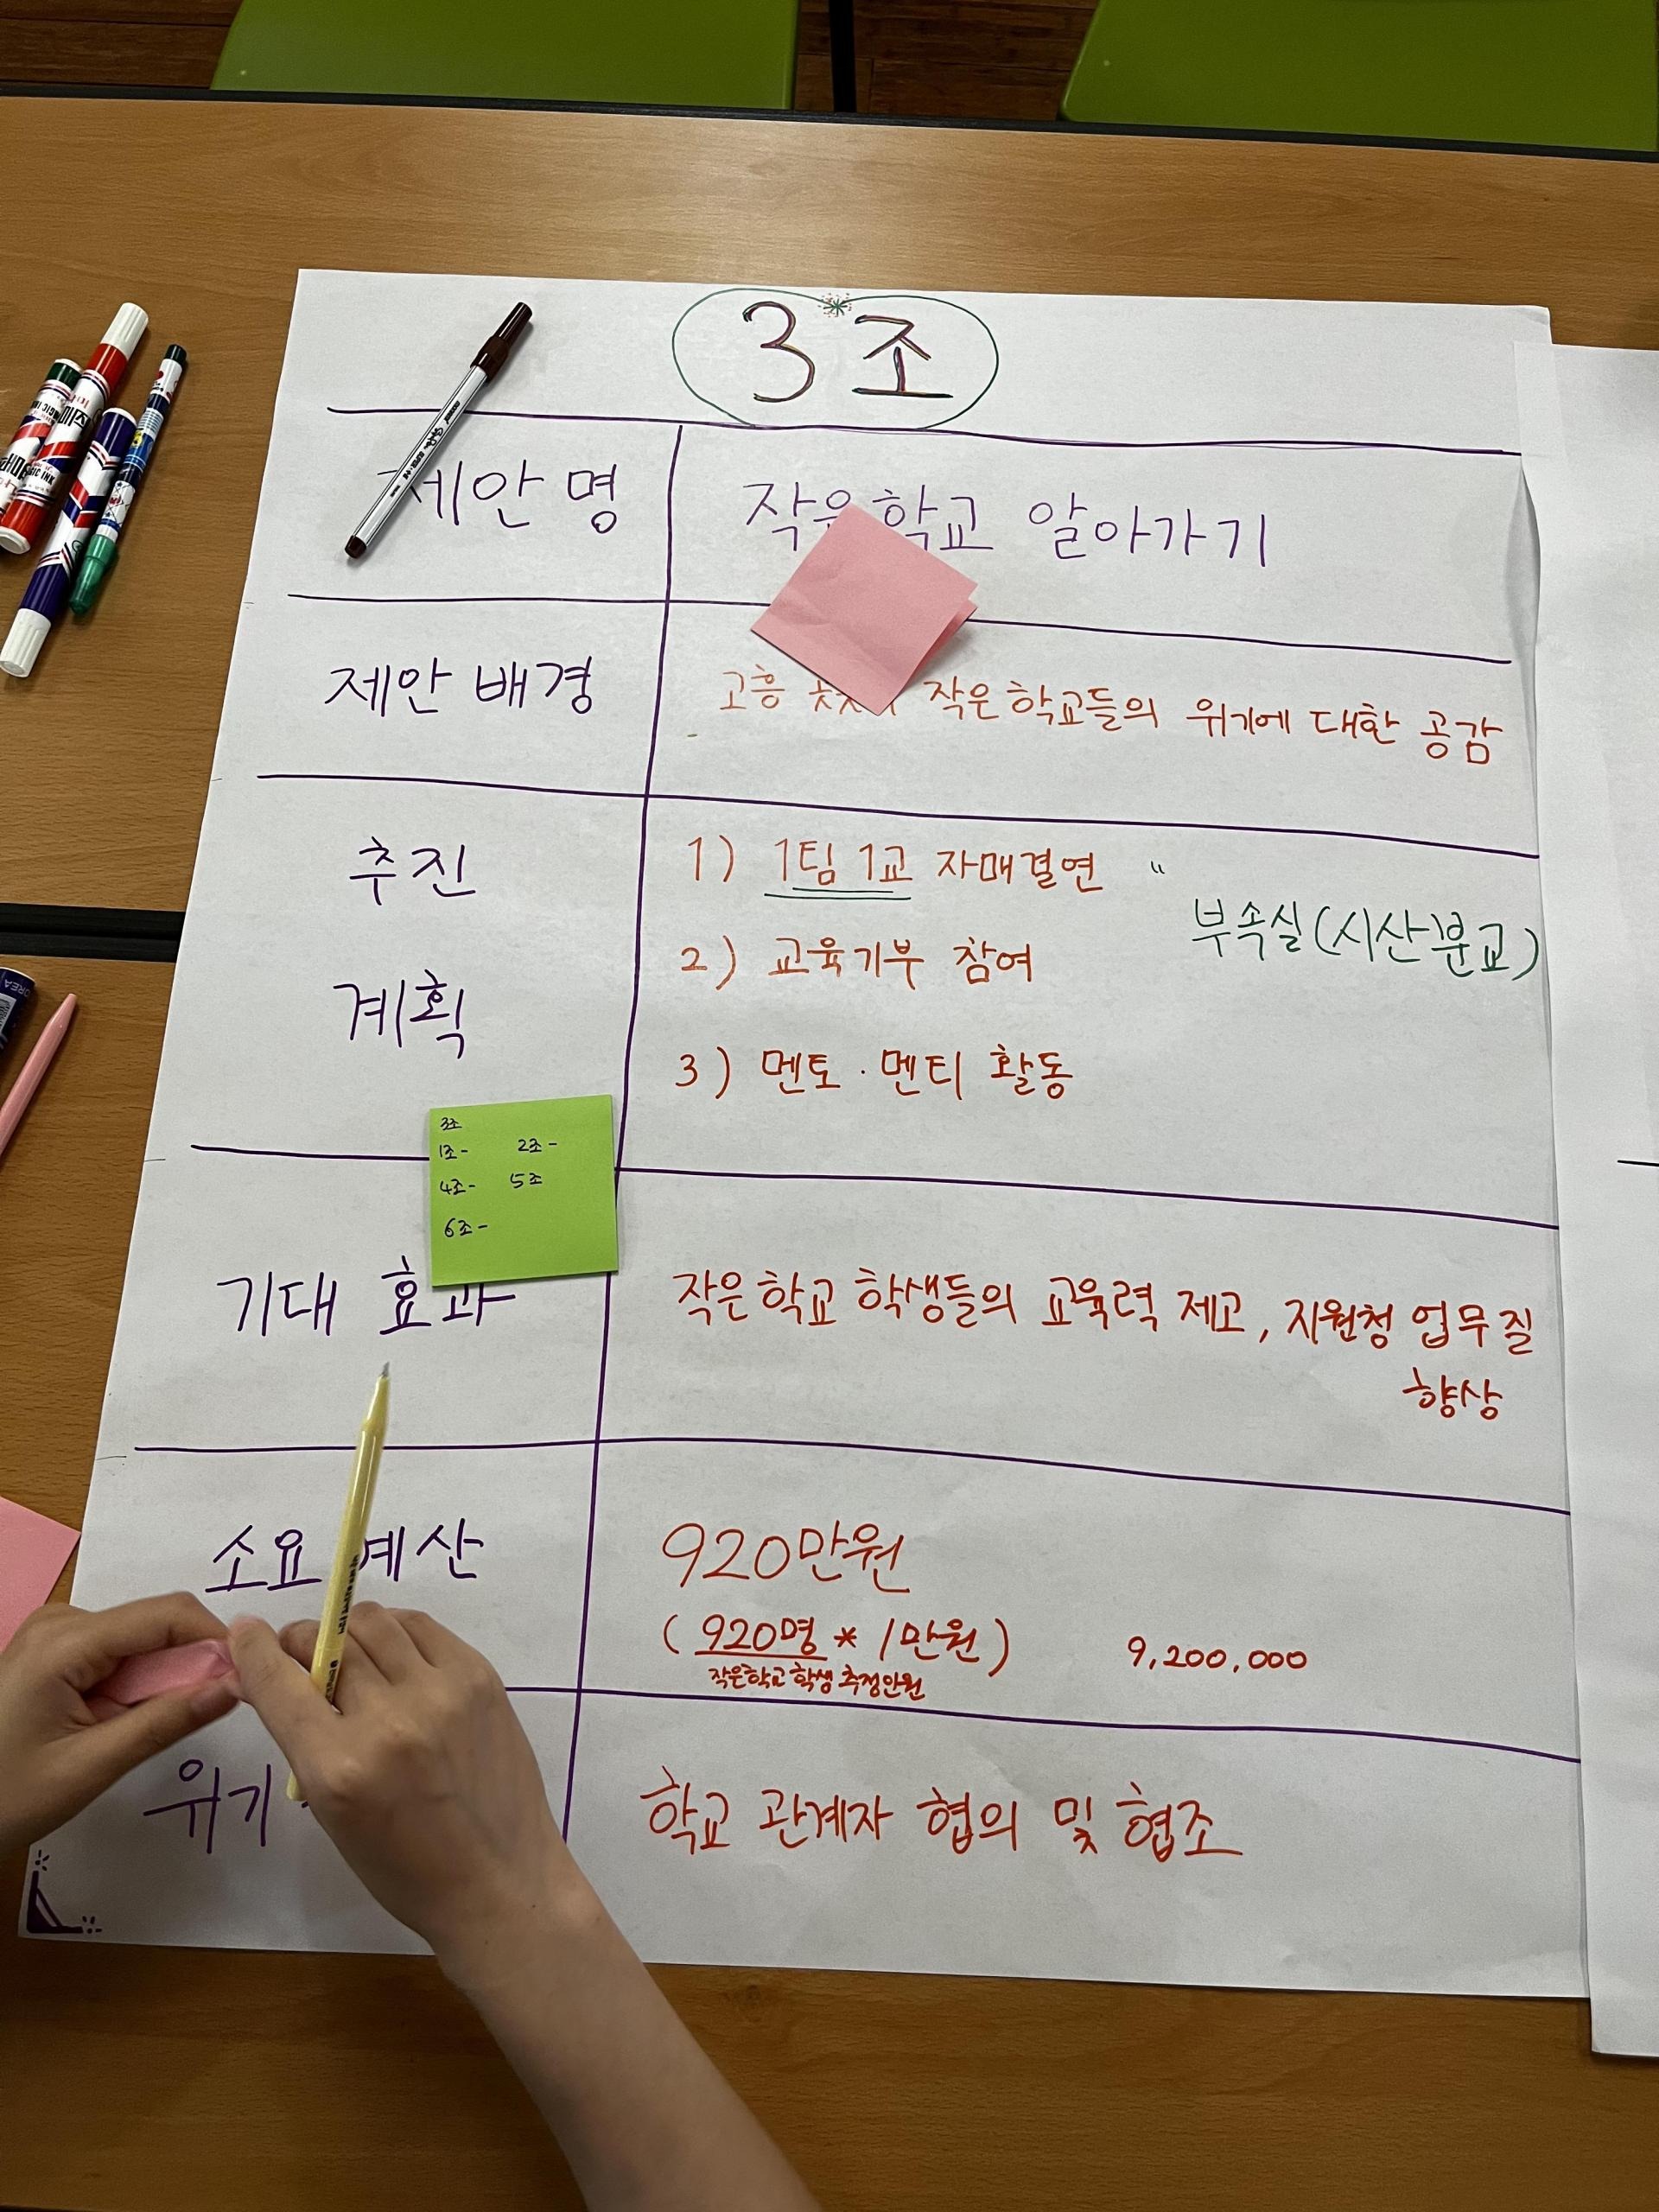 3조
제안명
작은학교 알아가기
제안 배경
고흥 작은학교들의 위기에 대한 공감
추진
계획
1) 1팀 1교 자매결연 "
부속실(시산분교)
2) 교육기부 참여
3) 멘토·멘티 활동
3조
1조- 2조-
4조- 5조
6조-
기대 효과
작은학교 학생들의 교육력 제고, 지원청 업무 질
향상
소요 예산
920만원
(920명 * 1만원) 9,200,000
작은학교 학생 추정인원
위기
학교 관계자 협의 및 협조